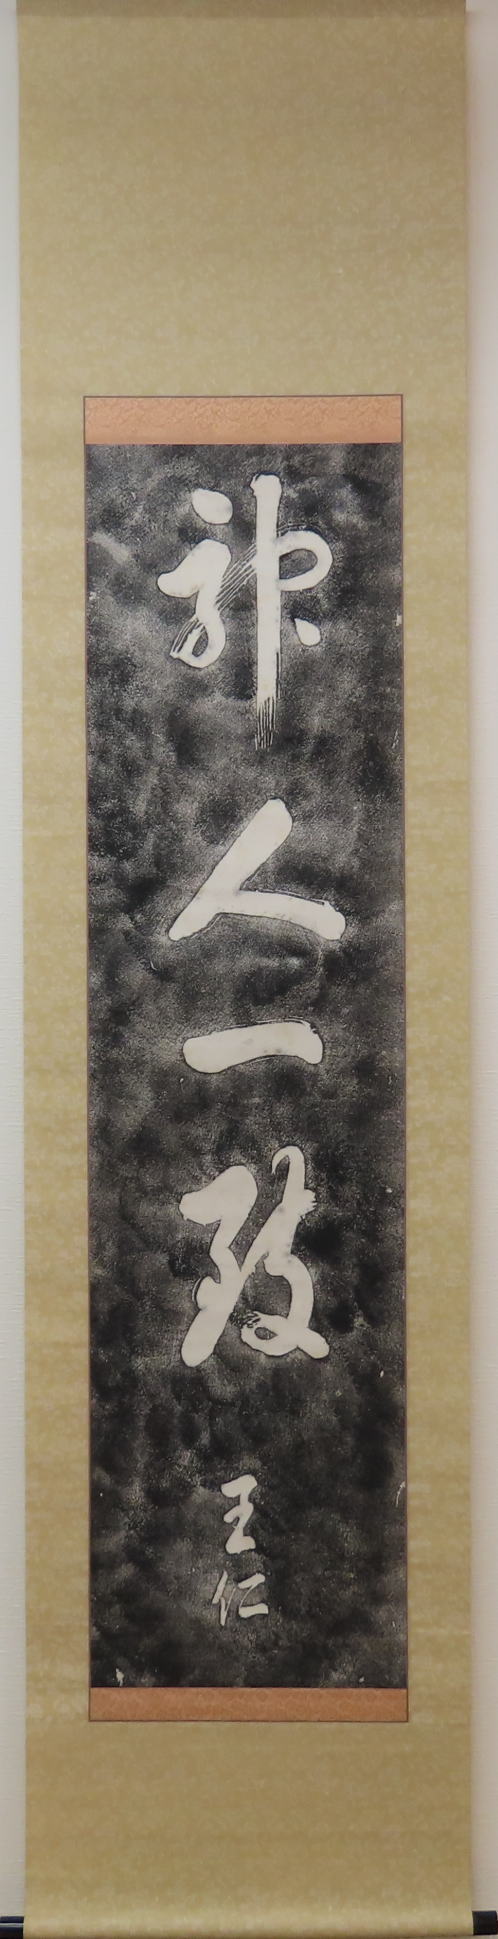 神人一致
王仁